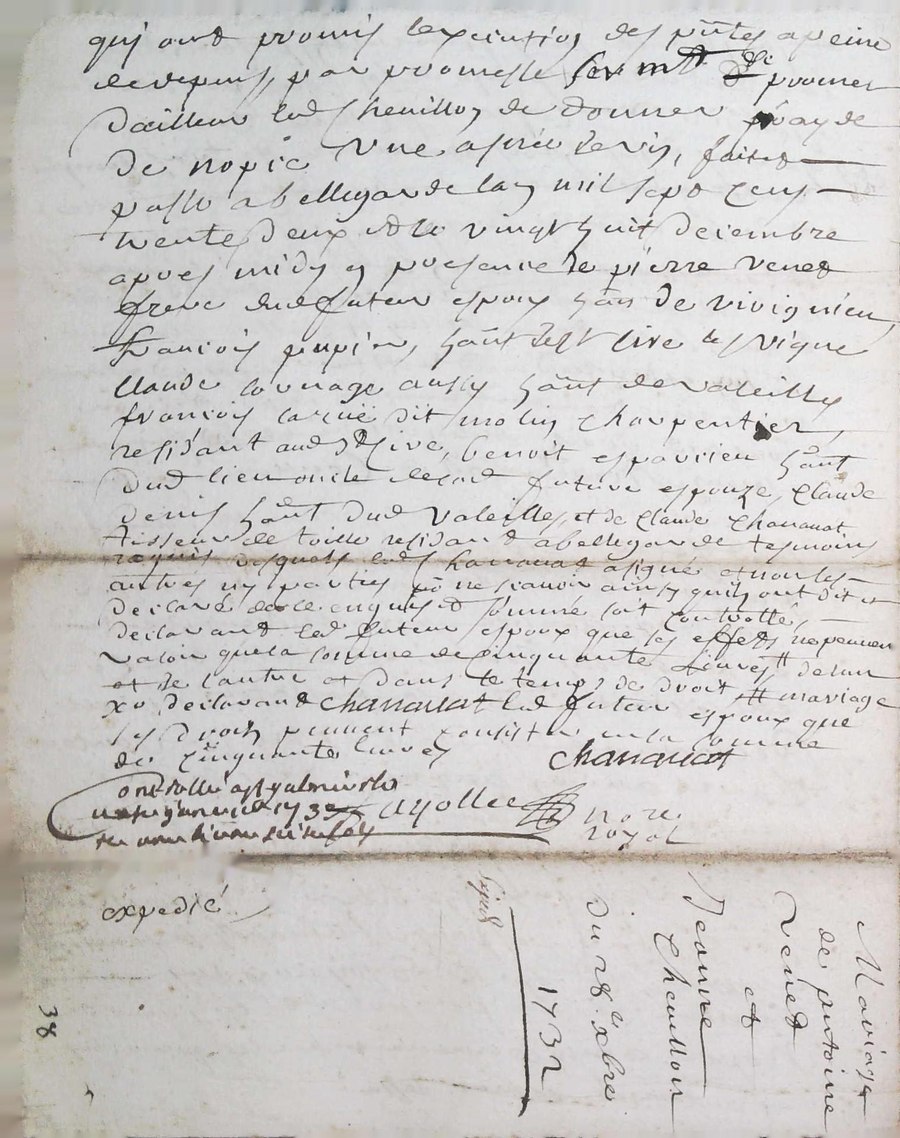 qui ont promis l'exécution des pntes a peine
de depens, par promesse serm^tt d^e promet
d'ailleur lad Cheuillon de donner
de nopie une asnée de vin, fait et
passé a bellegarde lan mil sept cens
trente deux et le vingt huit decembre
apres midy en presence de pierre Venet
frere dud futeur espoux hãnt de virignieu
francois pupier, hãnt de st cire les vigne
Claude aussy hãnt de valeille
francois dit molin charpentier,
residant aud st Cire, benoit esparcieu hãnt
dud lieu oncle de lad future espouze, Claude
denis hãnt dud Valeilles, et de Claude Chanauat
tisseur de toille residant a bellegarde tesmoins
requis desquels led Chanauat a signé et non les
autres ny parties pō ne scavoir ainsy quils ont dit et
declaré de ce enquis et sommé soit controllé,
declarant led futeur espoux que ses effets ne peuvent
valoir que la somme de cinquante livres de lun
et de l'autre et dans le temps de droit # mariage
xv declarant Chanauat led futeur espoux que
ses droits peuvent consister en la somme
de cinquante livres
Chanauat
controllé a st galmier le
janvier 173
ayollee no^re
royal
expedié
38
Mariage
de antoine
Venet
et
Jeanne
Cheuillon
du 28^e xbre
1732